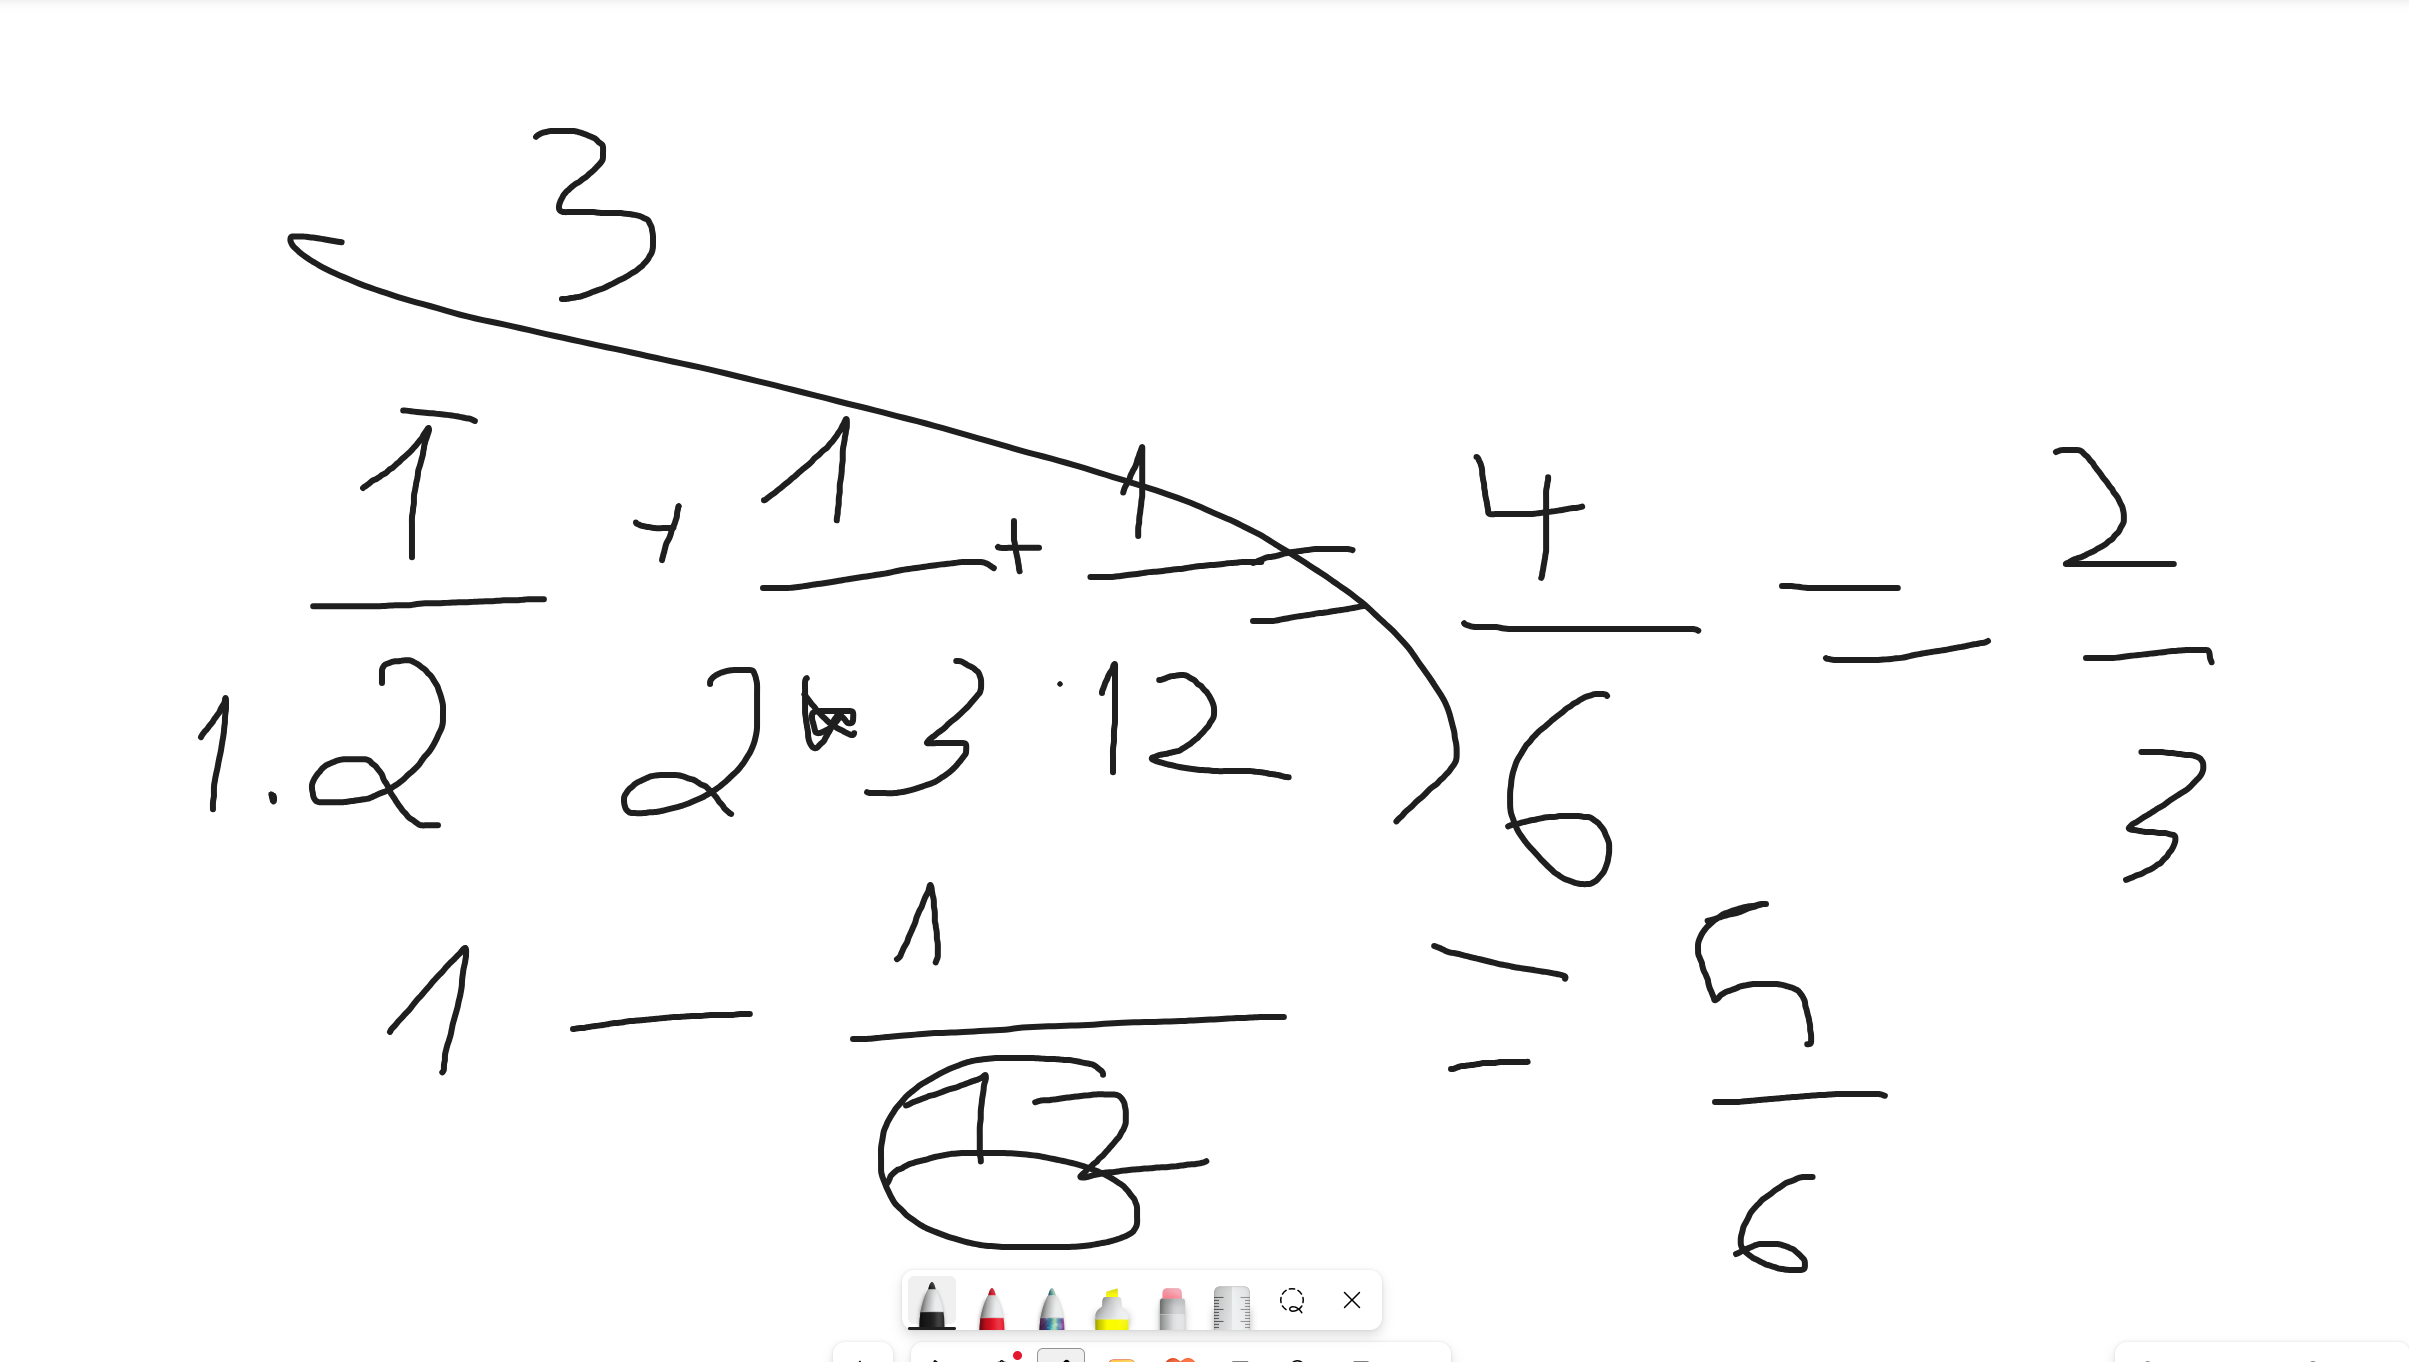 3
1/1.2 + 1/2 3 + 1/12 = 4/6 = 2/3
1 - 1/12 = 5/6